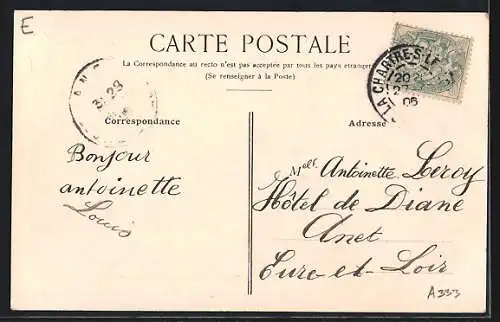 E
CARTE POSTALE
La Correspondance au recto n'est pas acceptée par tous les pays étrangers
(Se renseigner à la Poste)
LA CHARTRE-S-LE
20
27
05
3 28
Correspondance
Adresse
Bonjour
antoinette
Louis
Melle Antoinette Leroy
Hôtel de Diane
Anet
Eure-et-Loir
A333